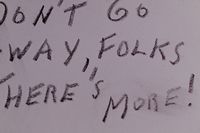 DON'T GO
-WAY, FOLKS
THERE'S MORE!